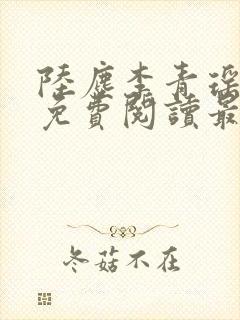 陸塵李青瑶
免費閱讀最
冬菇不在